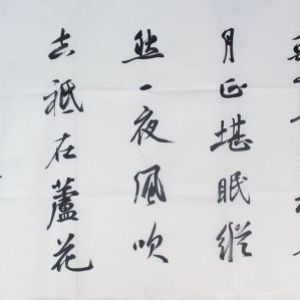 月正堪眠縱
然一夜風吹
去祗在蘆花